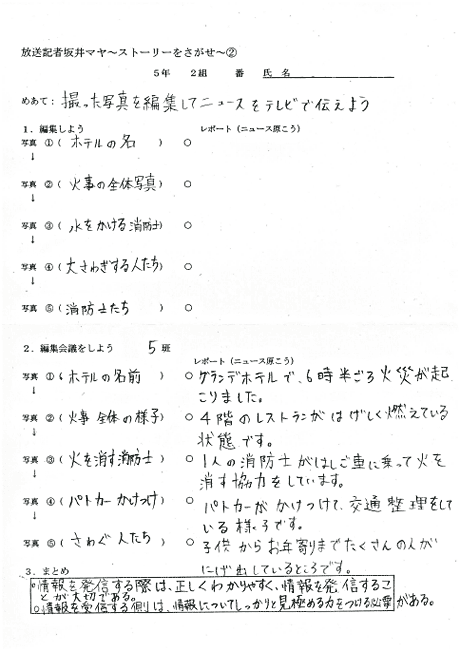 放送記者坂井マヤ～ストーリーをさがせ～②
5年 2組 番 氏名
めあて: 撮った写真を編集してニュースをテレビで伝えよう
1．編集しよう レポート（ニュース原こう）
写真 ①( ホテルの名 ) ○
↓
写真 ②( 火事の全体写真 ) ○
↓
写真 ③( 水をかける消防士 ) ○
↓
写真 ④( 大さわぎする人たち ) ○
↓
写真 ⑤( 消防士たち ) ○
2．編集会議をしよう 5班
レポート（ニュース原こう）
写真 ①( ホテルの名前 ) ○グランデホテルで、6時半ごろ火災が起
↓ こりました。
写真 ②( 火事全体の様子 ) ○4階のレストランがはげしく燃えている
↓ 状態です。
写真 ③( 火を消す消防士 ) ○1人の消防士がはしご車に乗って火を
↓ 消す協力をしています。
写真 ④( パトカーかけつけ ) ○パトカーがかけつけて、交通整理をして
↓ いる様子です。
写真 ⑤( さわぐ人たち ) ○子供からお年寄りまでたくさんの人が
にげだしているところです。
3．まとめ
○情報を発信する際は、正しくわかりやすく、情報を発信するこ
とが大切である。
○情報を受信する側は、情報についてしっかりと見極める力をつける必要がある。